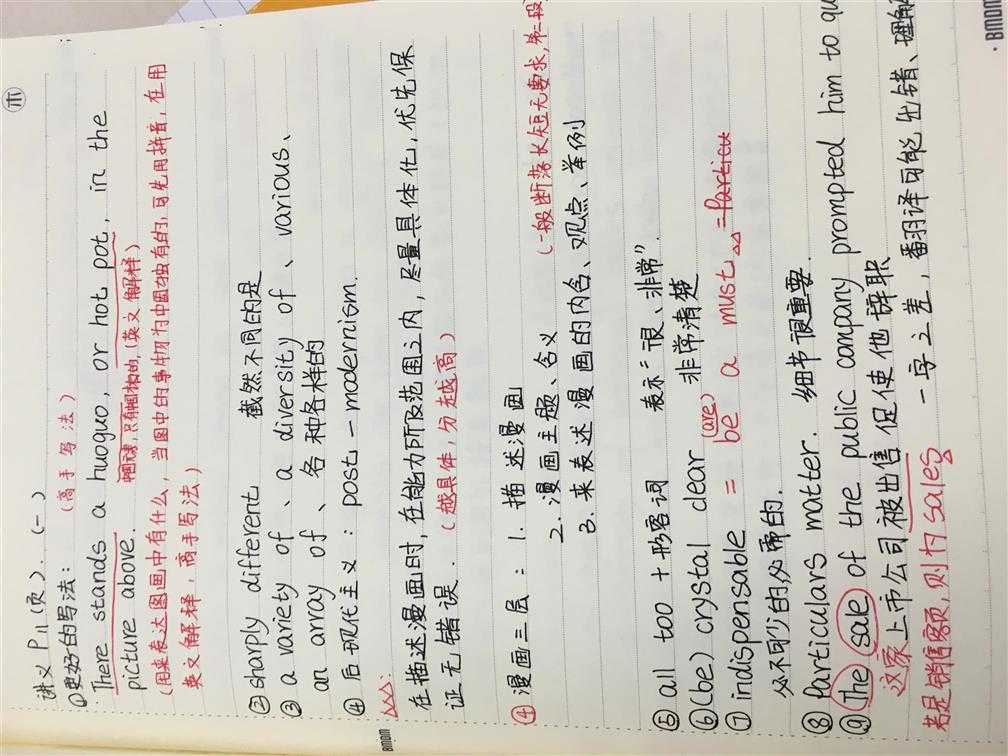 木
讲义 P11(页). (一)
①更好的写法: (高手写法)
There stands a huoguo, or hot pot, in the
中国元素,只有中国独有的,(英文解释)
picture above.
(用来表达图画中有什么, 当图中的事物为中国独有的,可先用拼音,在用
英文解释,高手写法)
② sharply different 截然不同的是
③ a variety of 、a diversity of 、various、
an array of 、各种各样的
④ 后现代主义: post-modernism.
△△△:
在描述漫画时,在能力所及范围之内,尽量具体化,优先保
证无错误.(越具体,分越高)
(一般断落长短无要求,第二段
④ 漫画三层: 1. 描述漫画
2. 漫画主题、含义
3. 来表述漫画的内含、观点、举例
⑤ all too + 形容词 表示"很、非常".
⑥ (be) crystal clear 非常清楚
(are)
⑦ indispensable = be a must △△ = particu
必不可少的,必需的.
⑧ Particulars matter. 细节很重要.
⑨ The sale of the public company prompted him to qu
这家上市公司被出售促使他辞职
若是销售额,则为sales 一字之差,翻译可能出错、理解
BMDM
BMDM